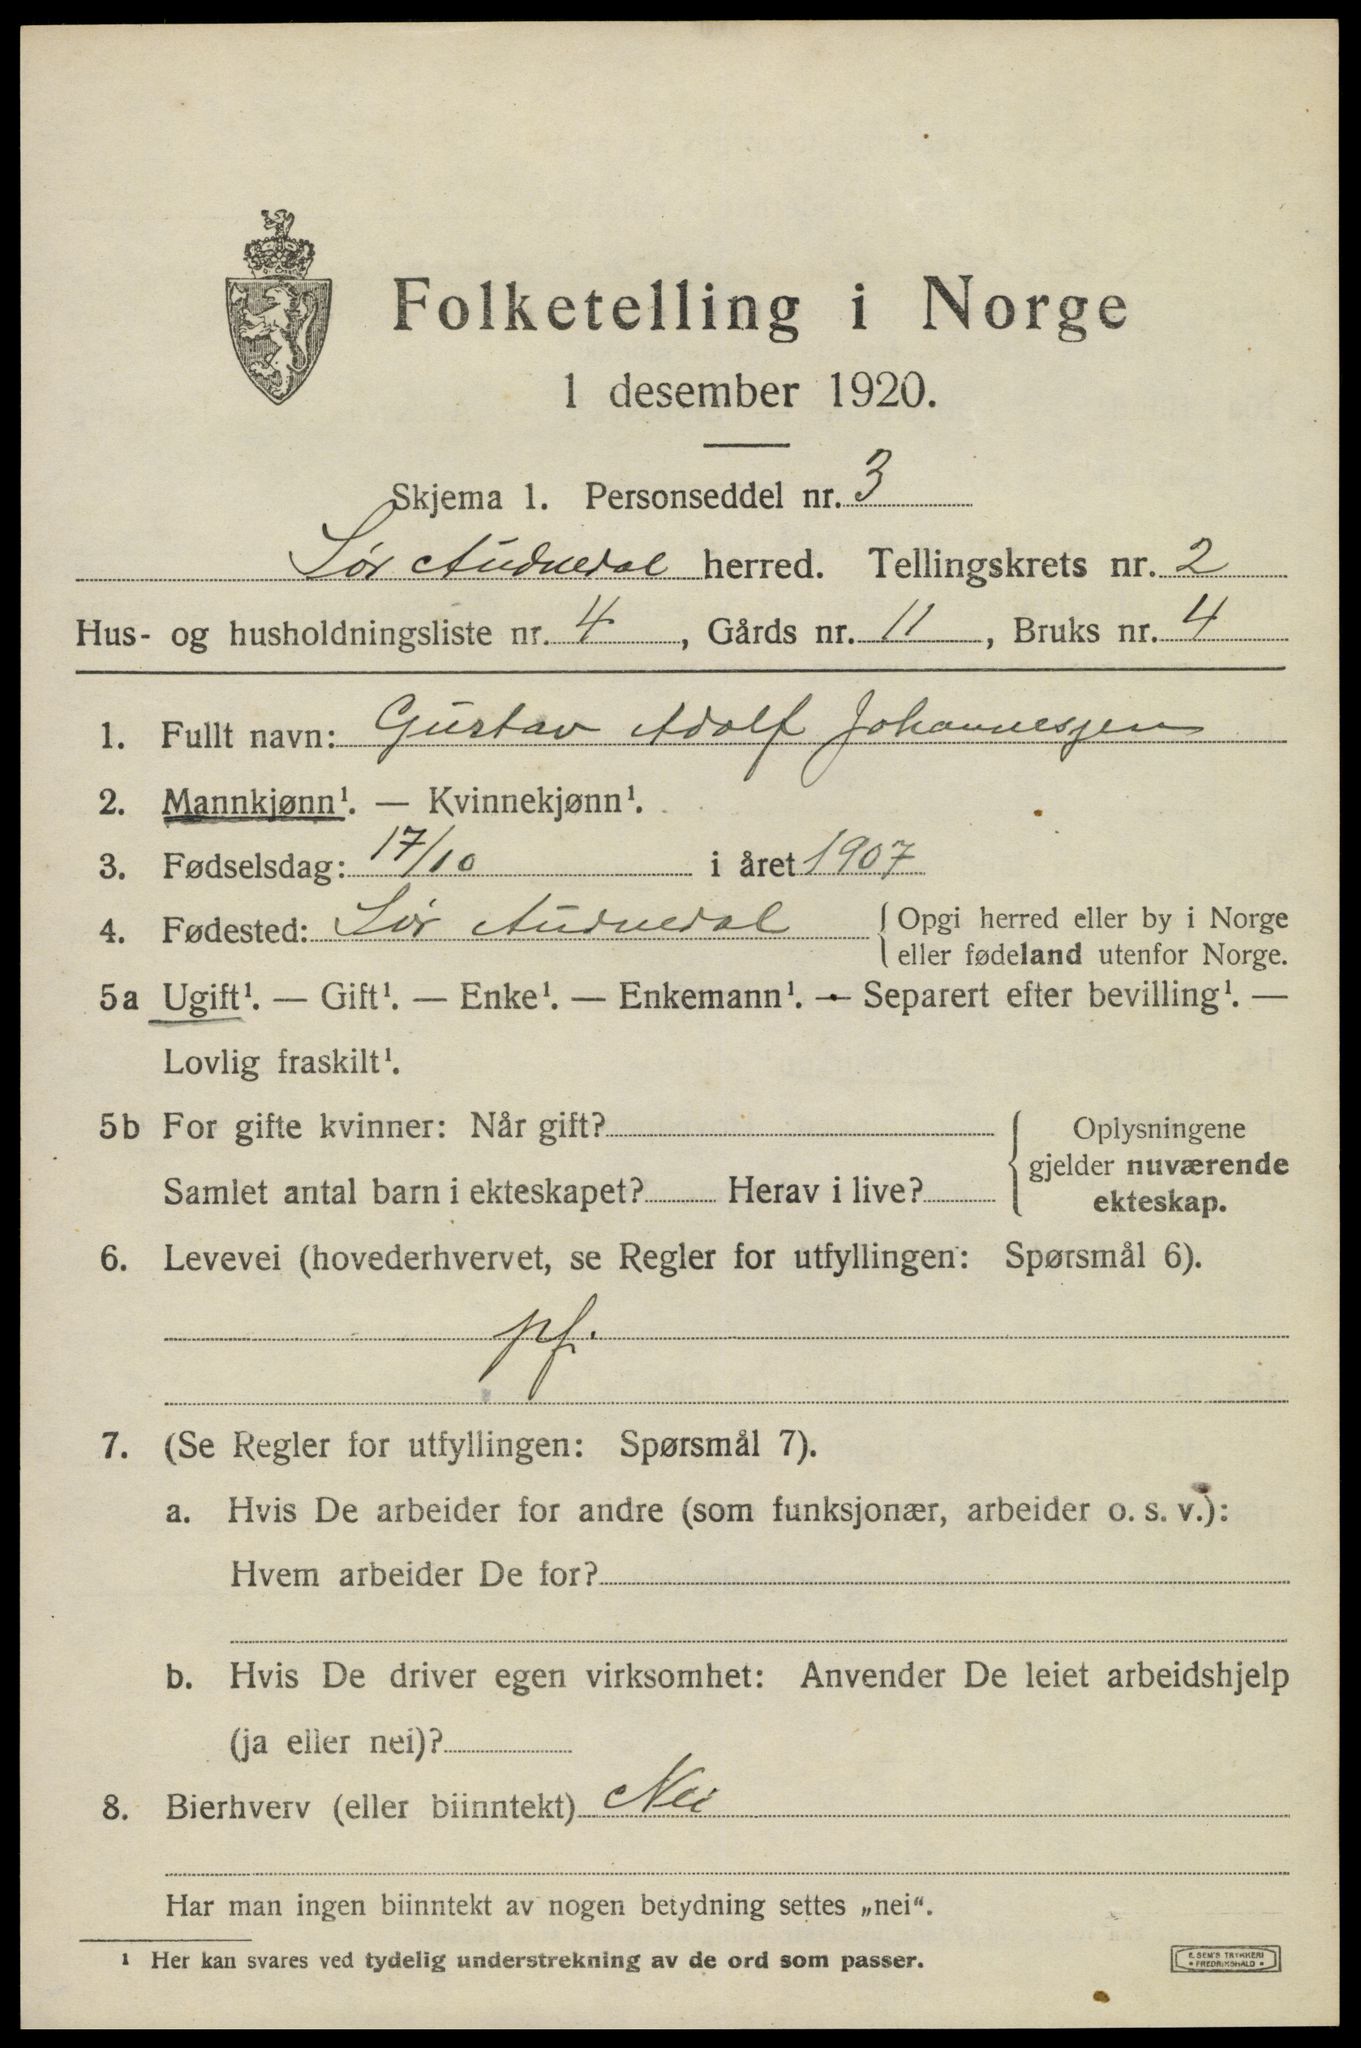 Folketelling i Norge
1 desember 1920.
Skjema 1. Personseddel nr. 3
Sør Audnedal herred. Tellingskrets nr. 2
Hus- og husholdningsliste nr. 4, Gårds nr. 11, Bruks nr. 4
1. Fullt navn: Gustav Adolf Johannesjen
2. Mannkjønn¹. — Kvinnekjønn¹.
3. Fødselsdag: 17/10 i året 1907
4. Fødested: Sør Audnedal { Opgi herred eller by i Norge
eller fødeland utenfor Norge.
5a Ugift¹. — Gift¹. — Enke¹. — Enkemann¹. — Separert efter bevilling¹. —
Lovlig fraskilt¹.
5b For gifte kvinner: Når gift?
Samlet antal barn i ekteskapet? Herav i live?
{ Oplysningene
gjelder nuværende
ekteskap.
6. Levevei (hovederhvervet, se Regler for utfyllingen: Spørsmål 6).
pf.
7. (Se Regler for utfyllingen: Spørsmål 7).
a. Hvis De arbeider for andre (som funksjonær, arbeider o. s. v.):
Hvem arbeider De for?
b. Hvis De driver egen virksomhet: Anvender De leiet arbeidshjelp
(ja eller nei)?
8. Bierhverv (eller biinntekt) Nei
Har man ingen biinntekt av nogen betydning settes „nei“.
¹ Her kan svares ved tydelig understrekning av de ord som passer.
E. SEM'S TRYKKERI
• FREDRIKSHALD •